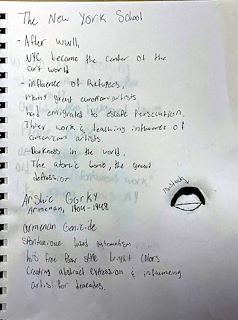 The New York School
- After WWII,
NYC became the center of the
art world
- influence of Refugees,
Many great european artists
had emigrated to escape persecution,
Their work & teaching influence of
american artists.
- Darkness in the world,
The atomic bomb, the great
depression
Arshile Gorky
Armenian, 1904-1948
armenian Genicide
spontaneous hand automatism
his free flow style bright colors
Creating abstract expression & influencing
artist for decades.